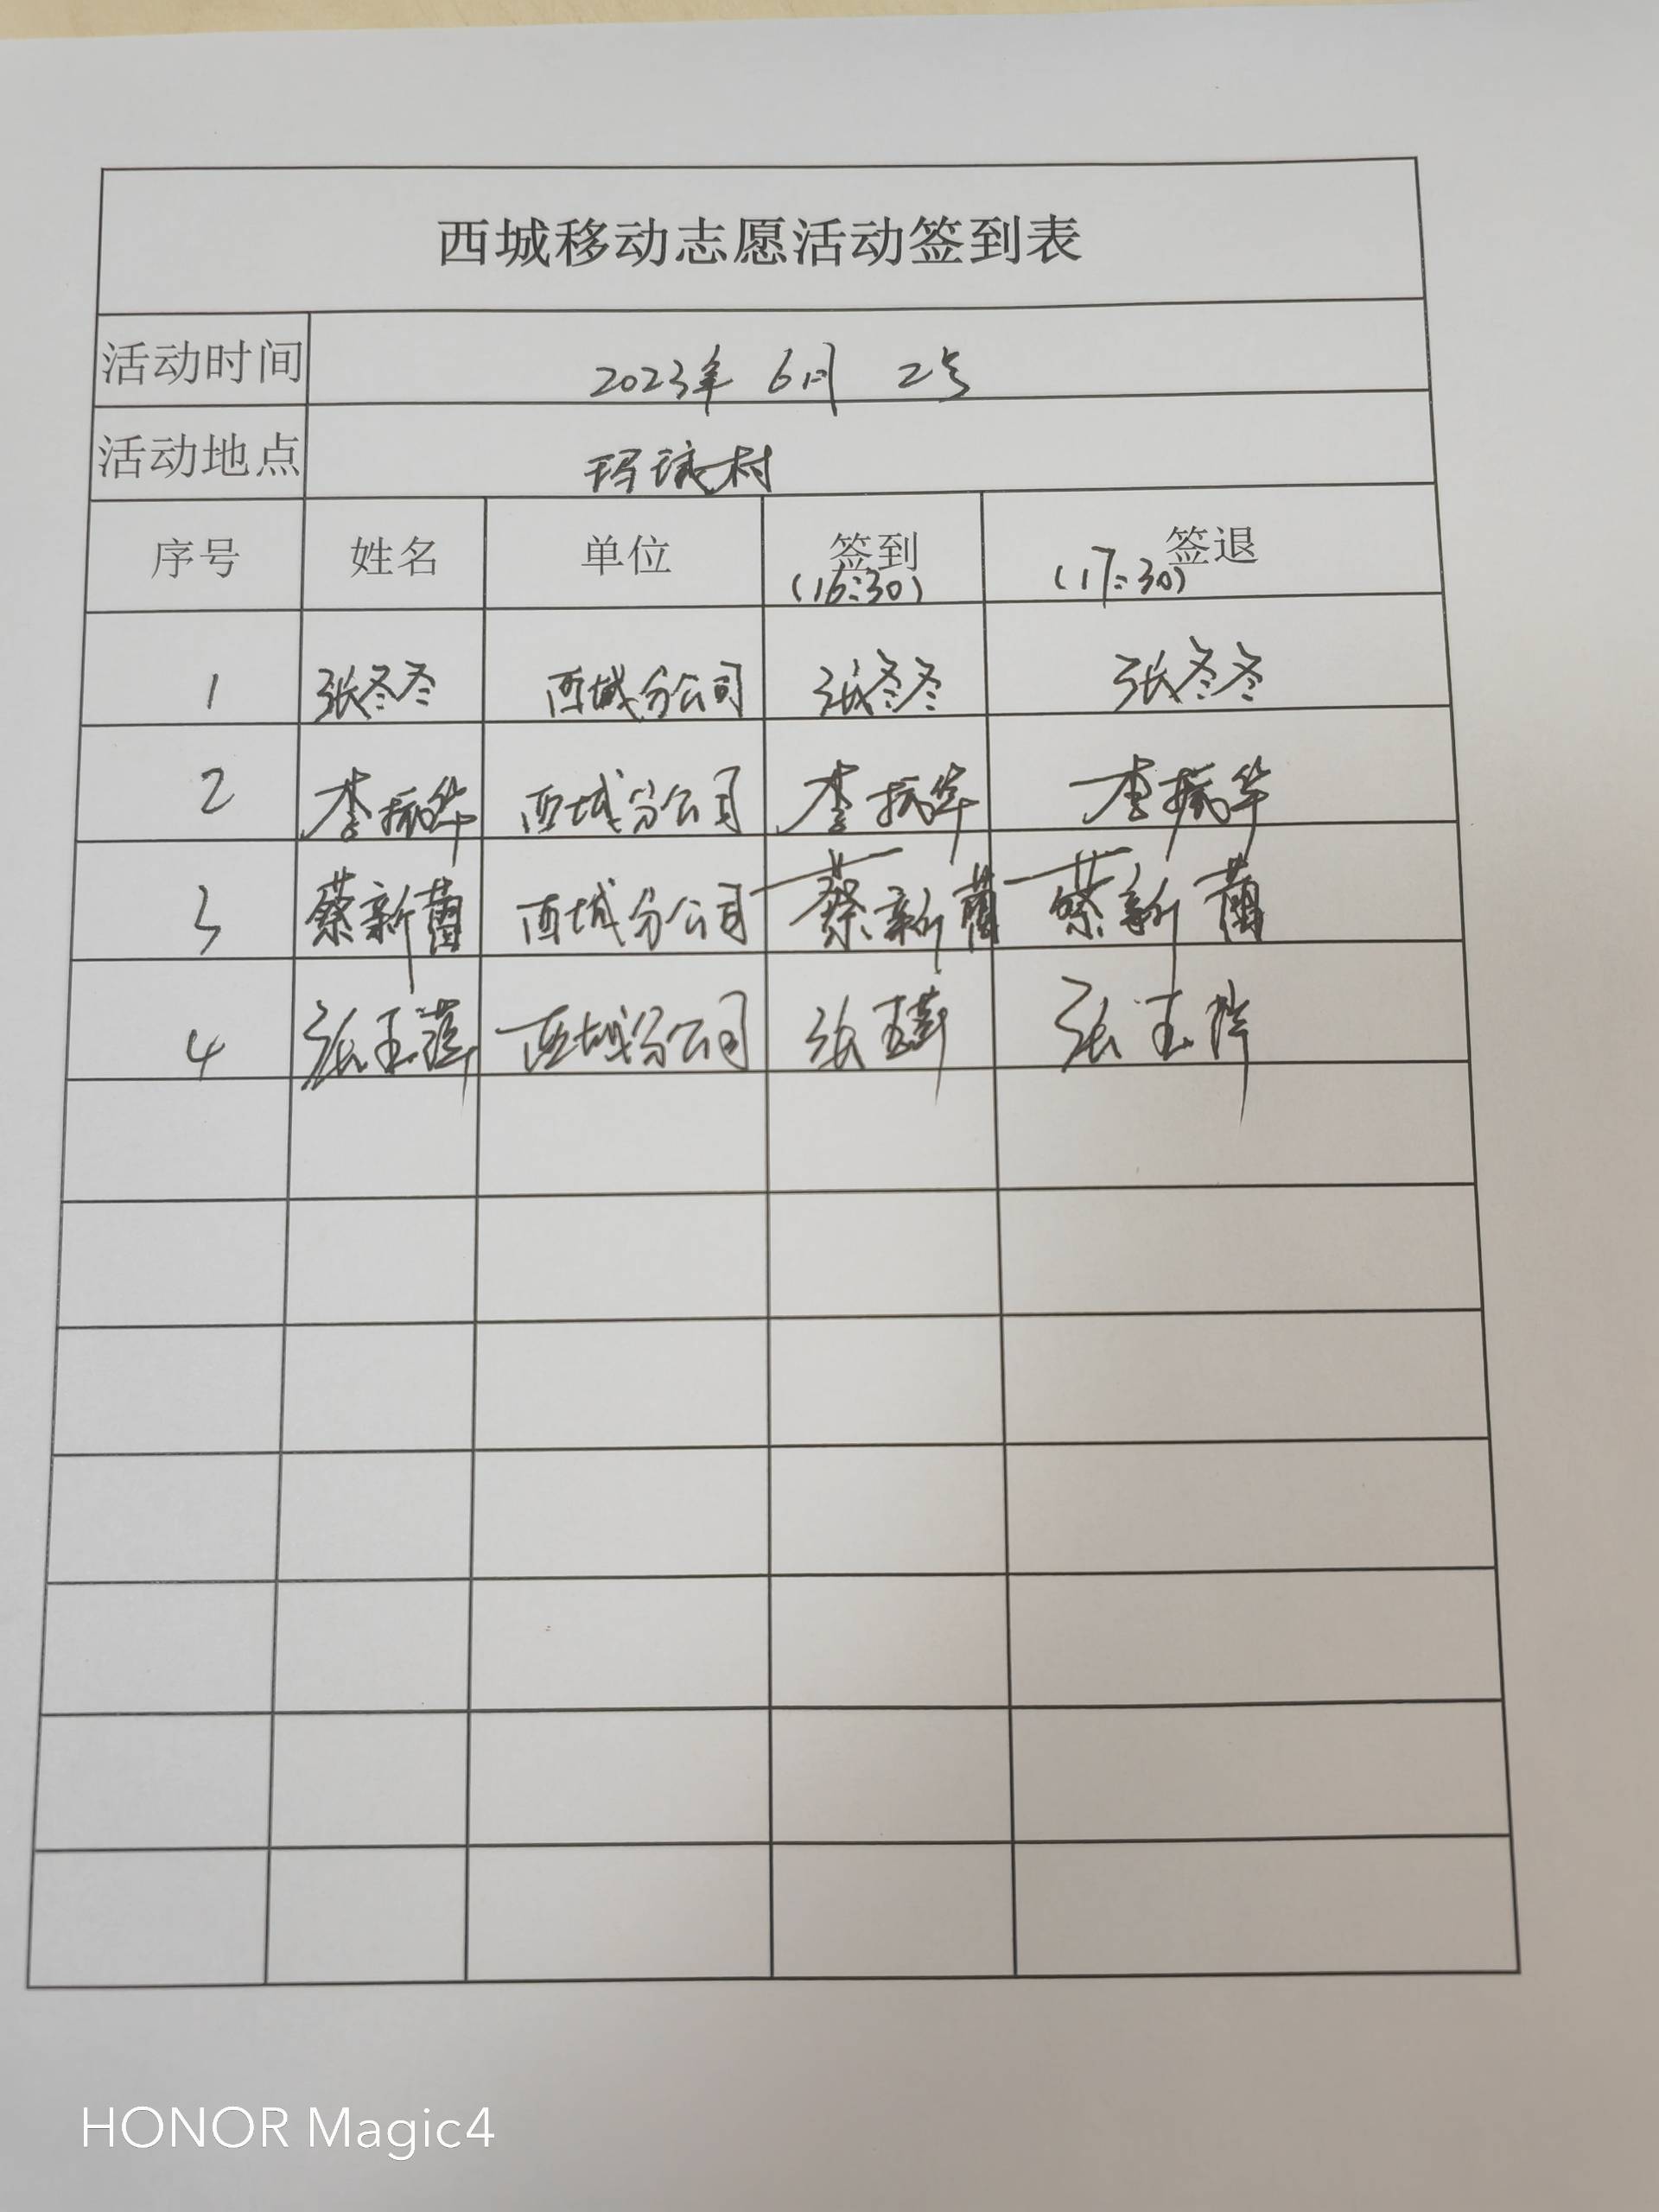 西城移动志愿活动签到表
活动时间 2023年 6月 2号
活动地点 玛璜村
序号 姓名 单位 签到 签退
(16:30) (17:30)
1 张冬冬 西城分公司 张冬冬 张冬冬
2 李振华 西城分公司 李振华 李振华
3 蔡新蕾 西城分公司 蔡新蕾 蔡新蕾
4 张玉萍 西城分公司 张玉萍 张玉萍
HONOR Magic4